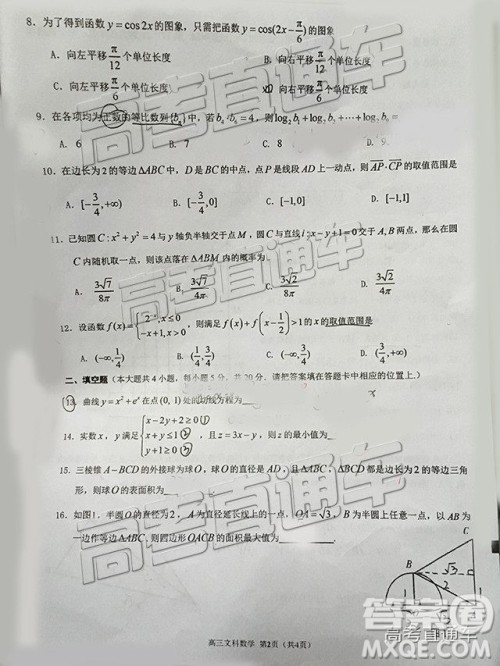 8. 为了得到函数 y=cos2x 的图象,只需把函数 y=cos(2x-π/6) 的图象
A. 向左平移 π/12 个单位长度 B. 向右平移 π/12 个单位长度
C. 向左平移 π/6 个单位长度 D. 向右平移 π/6 个单位长度
9. 在各项均为正数的等比数列{bₙ}中,若
A. 6 B. 7 C. 8 D. 9
10. 在边长为2的等边△ABC中,D是BC的中点,点P是线段AD上一动点,则 AP·CP 的取值范围是
A. [-3/4,+∞) B. [-3/4,0] C. [-1,0] D. [-1,1]
11. 已知圆 C:x²+y²=4 与 y 轴负半轴交于点 M,圆 C 与直线 l:x-y+1=0 交于 A,B 两点,那么在圆
C 内随机取一点,则该点落在△ABM 内的概率为
A. 3√7/8π B. 3√7/4π C. 3√2/8π D. 3√2/4π
12. 设函数 f(x)={2⁻ˣ,x≤0 -x+1,x>0,则满足 f(x)+f(x-1/2)>1 的 x 的取值范围是
A. (-∞,1/4) B. (-∞,3/4)
二、填空题(本大题共4小题,每小题5分,共20分,请把答案填在答题卡中相应的位置上.)
13. 曲线 y=x²+eˣ 在点(0,1)处的切线方程为
14. 实数 x,y 满足{x-2y+2≥0① x+y≤1② y+1≥0③,且 z=3x-y,则 z 的最小值为
15. 三棱锥 A-BCD 的外接球为球 O,球 O 的直径是 AD,且△ABC,△BCD 都是边长为2的等边三角
形,则球 O 的表面积为
16. 如图1,半圆 O 的直径为2,A 为直径延长线上的一点,OA=√3,B 为半圆上任意一点,以 AB 为
一边作等边△ABC,则四边形 OACB 的面积最大值为
B
√3
2
高三文科数学 第2页(共4页)
高考直通车
高考直通车
高考直通车
高考直通车
答案圈
MXQE.COM